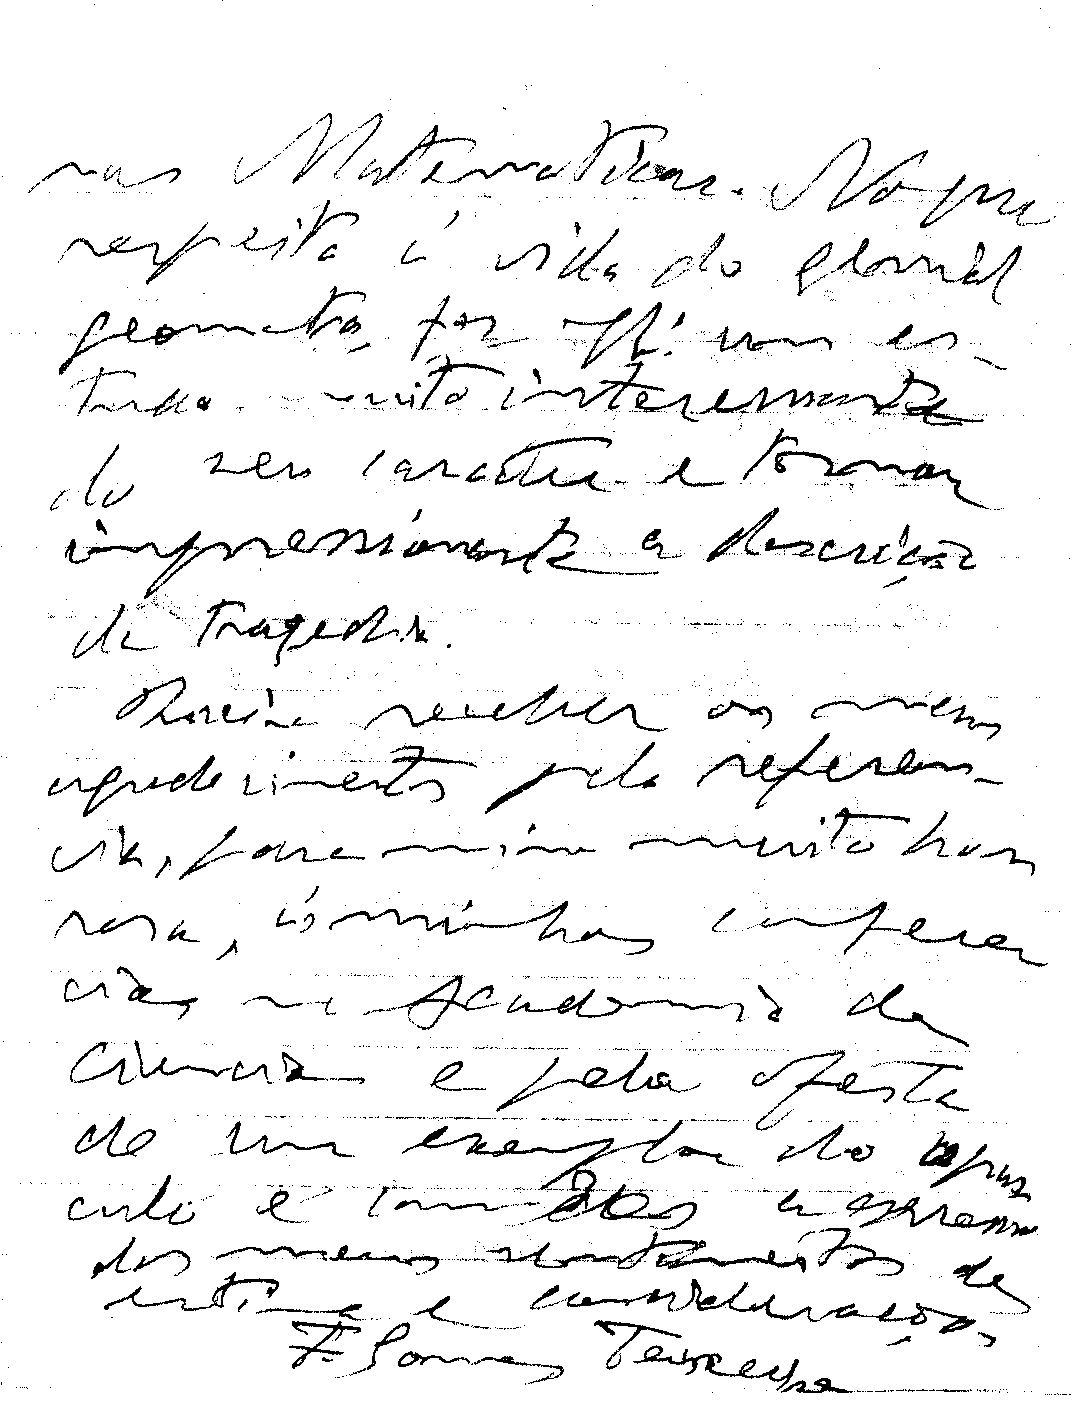 nas Mathematicas. No que
respeita á vida do genial
geometra, faz V. um es-
tudo muito interessante
do seu caracter e torna
impressionante a descrição
da tragedia.
Queira receber os meus
agradecimentos pela referen-
cia, para mim muito hon
rosa, ás minhas conferen
cias na Academia das
Ciencias e pela oferta
de um exemplar do opus
culo e com eles a expressão
dos meus sentimentos de
estima e consideração
F. Gomes Teixeira